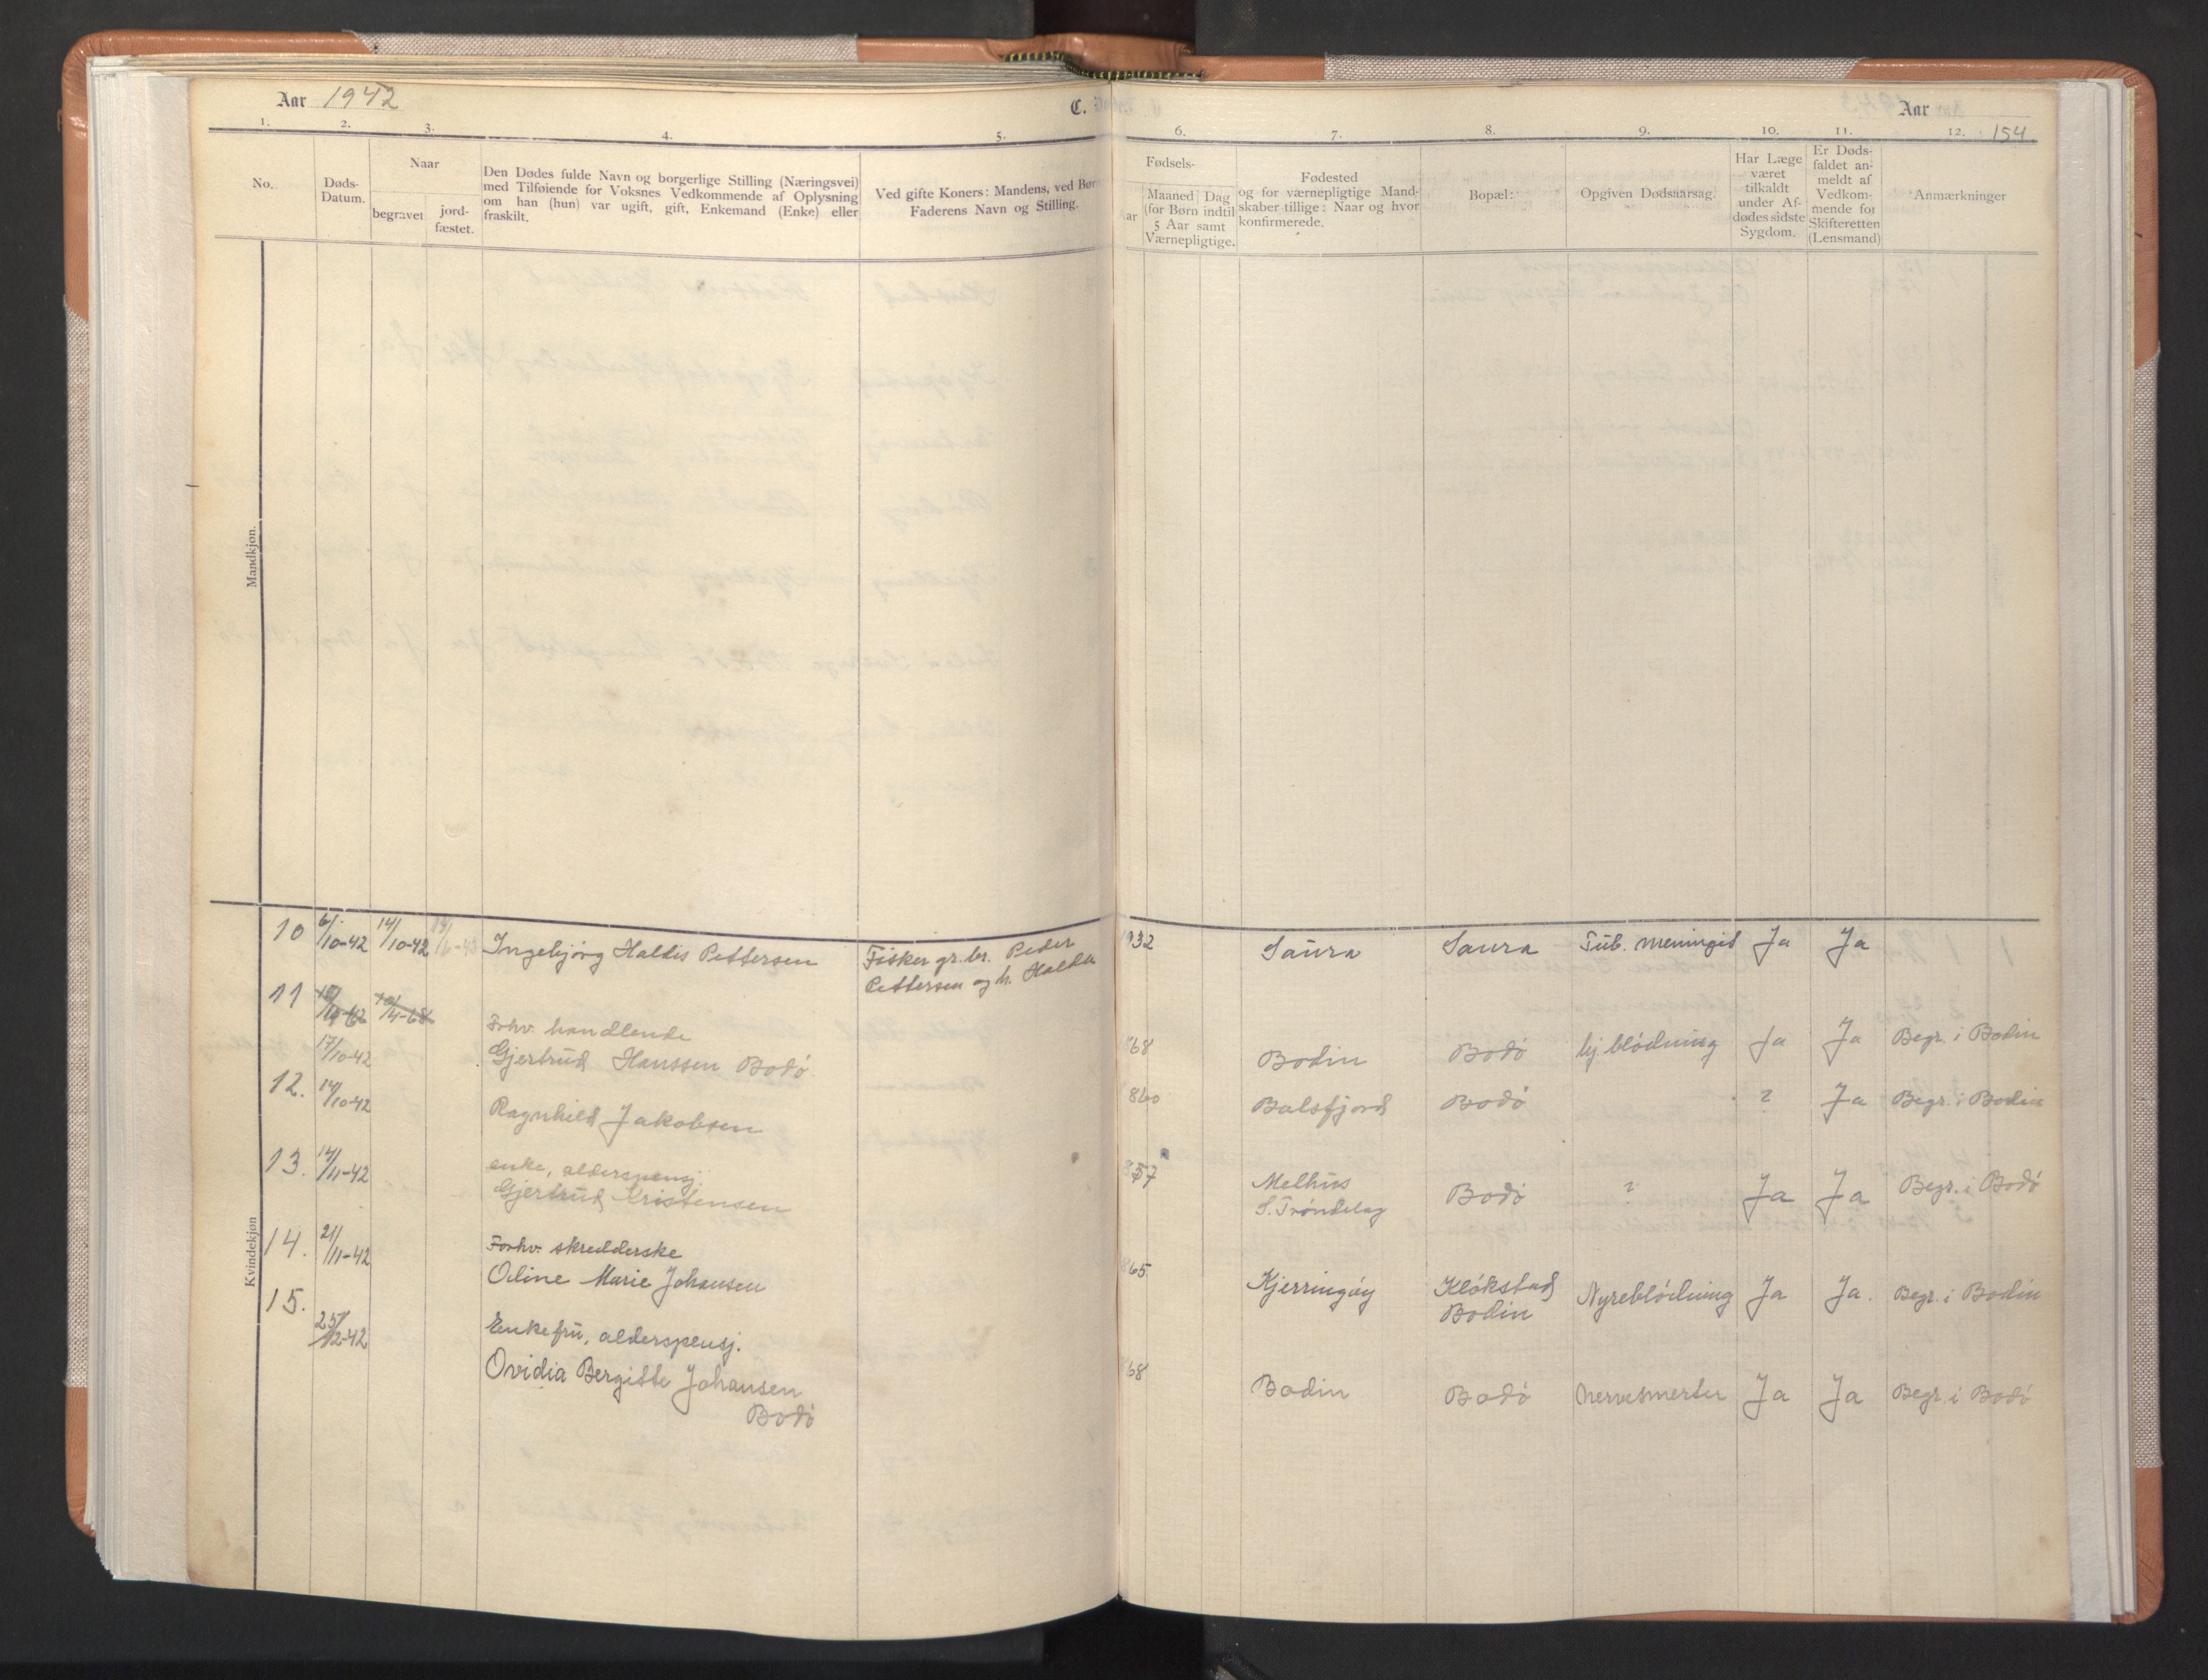 Aar 1942
C.
Aar
1. 2. 3. 4. 5. 6. 7. 8. 9. 10. 11. 12. 154
No.
Døds-
Datum.
Naar
begravet
jord-
fæstet.
Den Dødes fulde Navn og borgerlige Stilling (Næringsvei)
med Tilføiende for Voksnes Vedkommende af Oplysning
om han (hun) var ugift, gift, Enkemand (Enke) eller
fraskilt.
Ved gifte Koners: Mandens, ved Bør
Faderens Navn og Stilling.
Fødsels-
Aar
Maaned Dag
(for Børn indtil
5 Aar samt
Værnepligtige.
Fødested
og for værnepligtige Mand-
skaber tillige: Naar og hvor
konfirmerede.
Bopæl:
Opgiven Dødsaarsag.
Har Læge
været
tilkaldt
under Af-
dødes sidste
Sygdom.
Er Døds-
faldet an-
meldt af
Vedkom-
mende for
Skifteretten
(Lensmand)
Anmærkninger
Mandkjøn.
Kvindekjøn
10 6/10-42 14/10-42 Ingebjörg Haldis Pettersen Fisker gr. br. Peder 932 Saura Saura Tub. meningit Ja Ja
Pettersen og h.
11
Forhv. handlende
17/10-42 Gjertrud Hanssen Bodö 868 Bodin Bodö hj. blödning Ja Ja Begr. i Bodin
12. 14/10-42 Ragnhild Jakobsen 860 Balsfjord Bodö ? Ja Begr. i Bodin
13. 14/11-42 enke, alderspensj.
Gjertrud Kristensen 857 Melhus Bodö ? Ja Ja Begr. i Bodö
S. Tröndelag
14. 21/11-42 Forhv. skredderske
Oline Marie Johansen 865 Kjerringöy Klökstad Nyreblödning Ja Ja. Begr. i Bodin
Bodin
15. 25/12-42 Enkefru, alderspensj.
Ovidia Bergitte Johansen 868 Bodin Bodö Nervesmerter Ja Ja Begr. i Bodö
Bodö